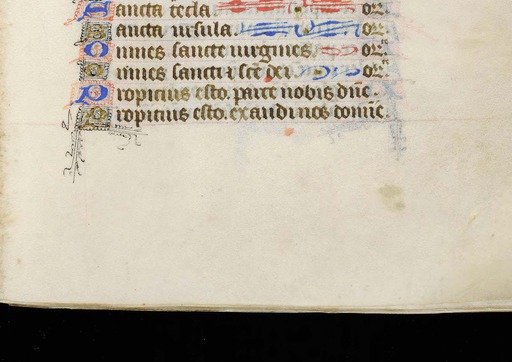 Sancta tecla. or.
Sancta ursula. or.
Omnes sancte uirgines or.
Omnes sancti ⁊ scē dei. or.
Propitius esto. parce nobis dñe.
Propitius esto. exaudi nos domīe.